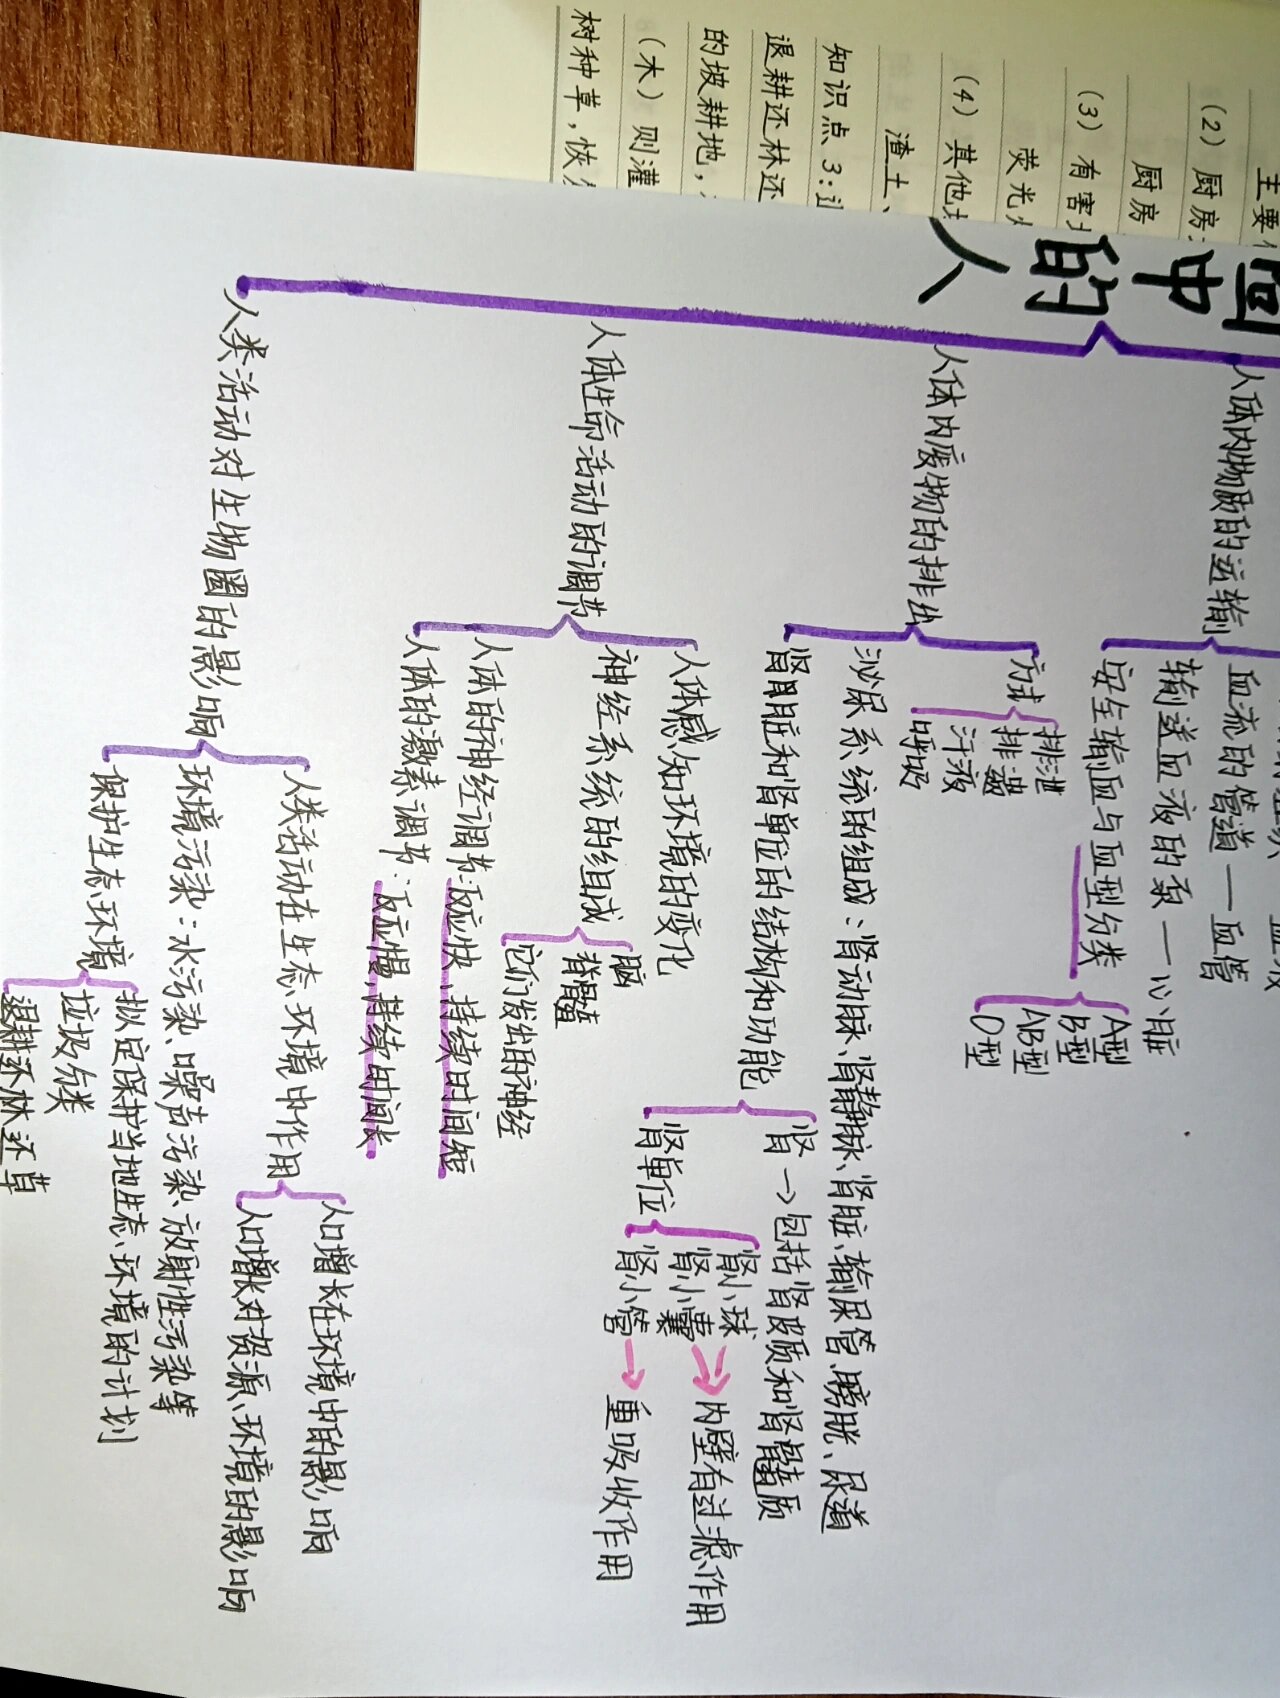 主要
(2)厨房
厨房
(3)有害
荧光
(4)其他
渣土、
知识点3:让
退耕还林还
的坡耕地,
(木)则灌
树种草,恢
中
的
人
人体内物质的运输
血流的管道——血管
输送血液的泵——心脏
安全输血与血型分类
A型
B型
AB型
O型
人体内废物的排出
方式
排泄
排遗
汗液
呼吸
泌尿系统的组成:肾动脉、肾静脉、肾脏、输尿管、膀胱、尿道
肾脏和肾单位的结构和功能
肾→包括肾皮质和肾髓质
肾单位
肾小球
肾小囊
→内壁有过滤作用
肾小管→重吸收作用
人体生命活动的调节
人体感知环境的变化
神经系统的组成
脑
脊髓
它们发出的神经
人体的神经调节:反应快,持续时间短
人体的激素调节:反应慢,持续时间长
人类活动对生物圈的影响
人类活动在生态环境中作用
人口增长在环境中的影响
人口增长对资源、环境的影响
环境污染:水污染、噪声污染、放射性污染等
保护生态环境
拟定保护当地生态环境的计划
垃圾分类
退耕还林还草